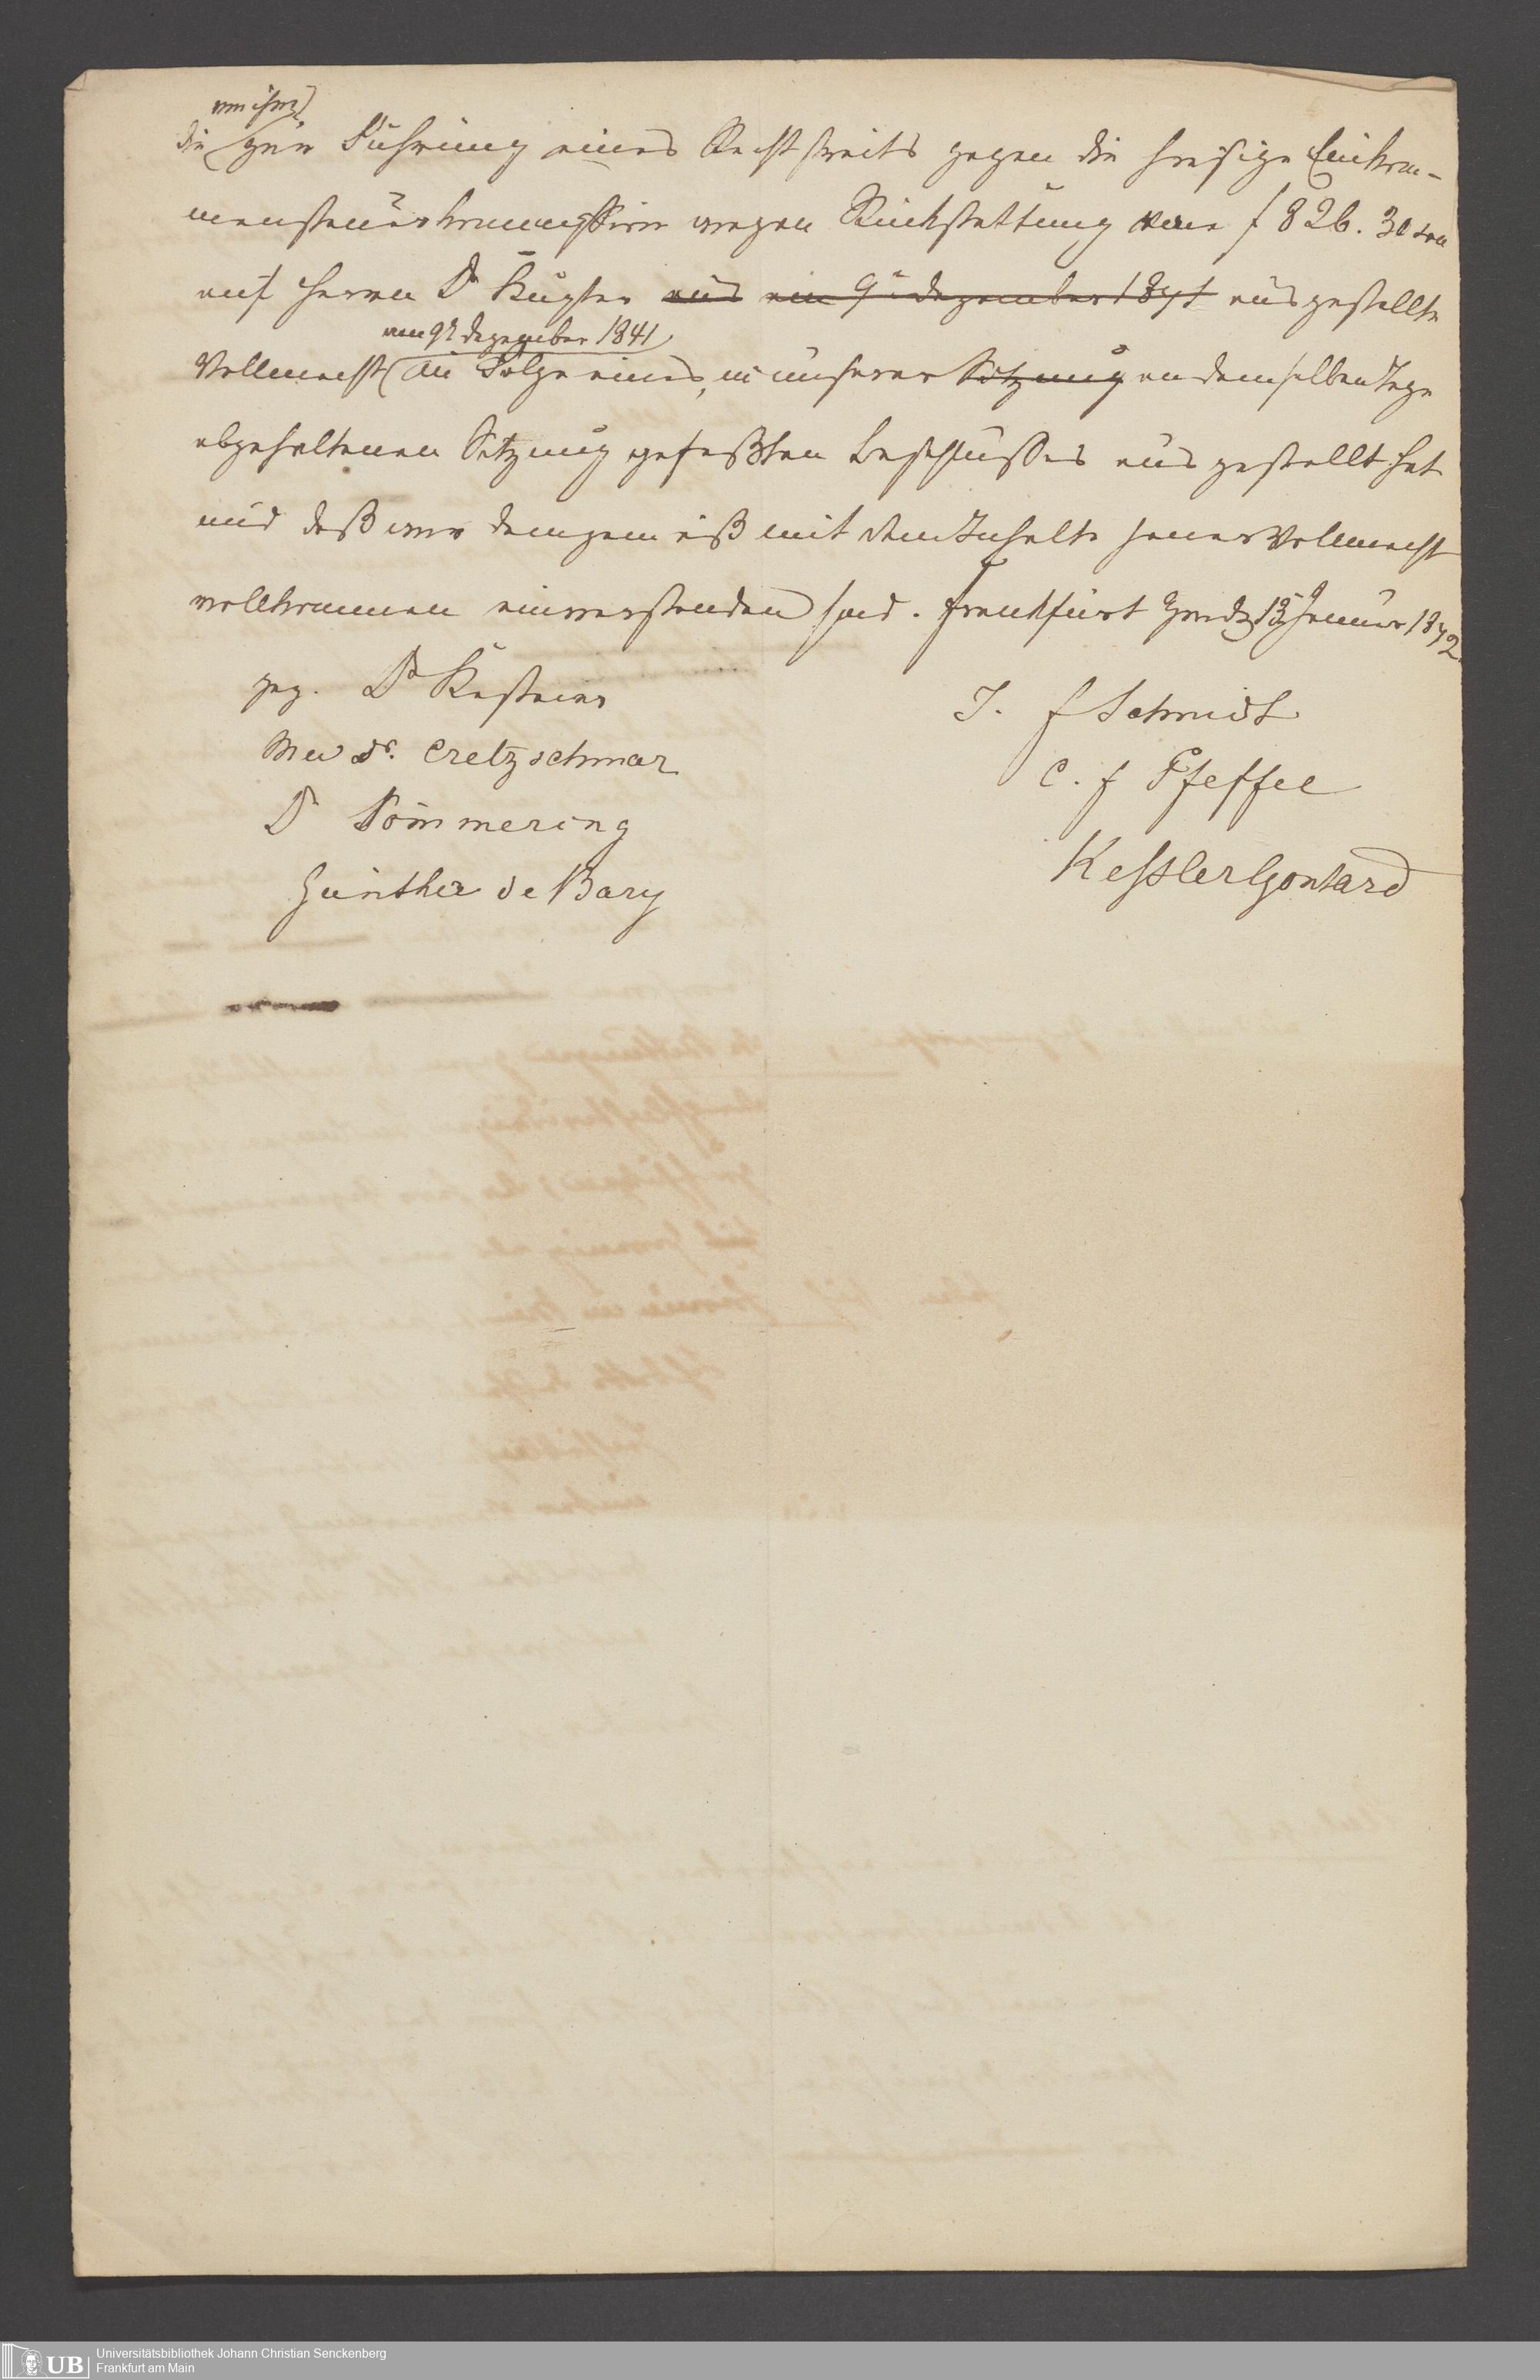 von ihm
die zur Führung eines Rechtstreits gegen die hiesige Einkom-
mensteuerkommission wegen Rückstattung von f 826. 30
auf Herrn Dr Kugler aus am 9n Dezember 1841 ausgestellte
am 9n Dezember 1841
Vollmacht in Folge eines, in unserer Sitzung an demselben Tage
abgehaltenen Sitzung gefaßten Beschlusses ausgestellt hat
und daß wir demgemäß mit dem Inhalte jener Vollmacht
vollkommen einverstanden sind. Frankfurt 13 Januar 1842.
gez. Dr Kestner
Med Dr. Cretzschmar
Dr Sömmering
Günther de Bary
J. f Schmidt
C. f Pfeffel
Kessler Gontard
UB Universitätsbibliothek Johann Christian Senckenberg
Frankfurt am Main